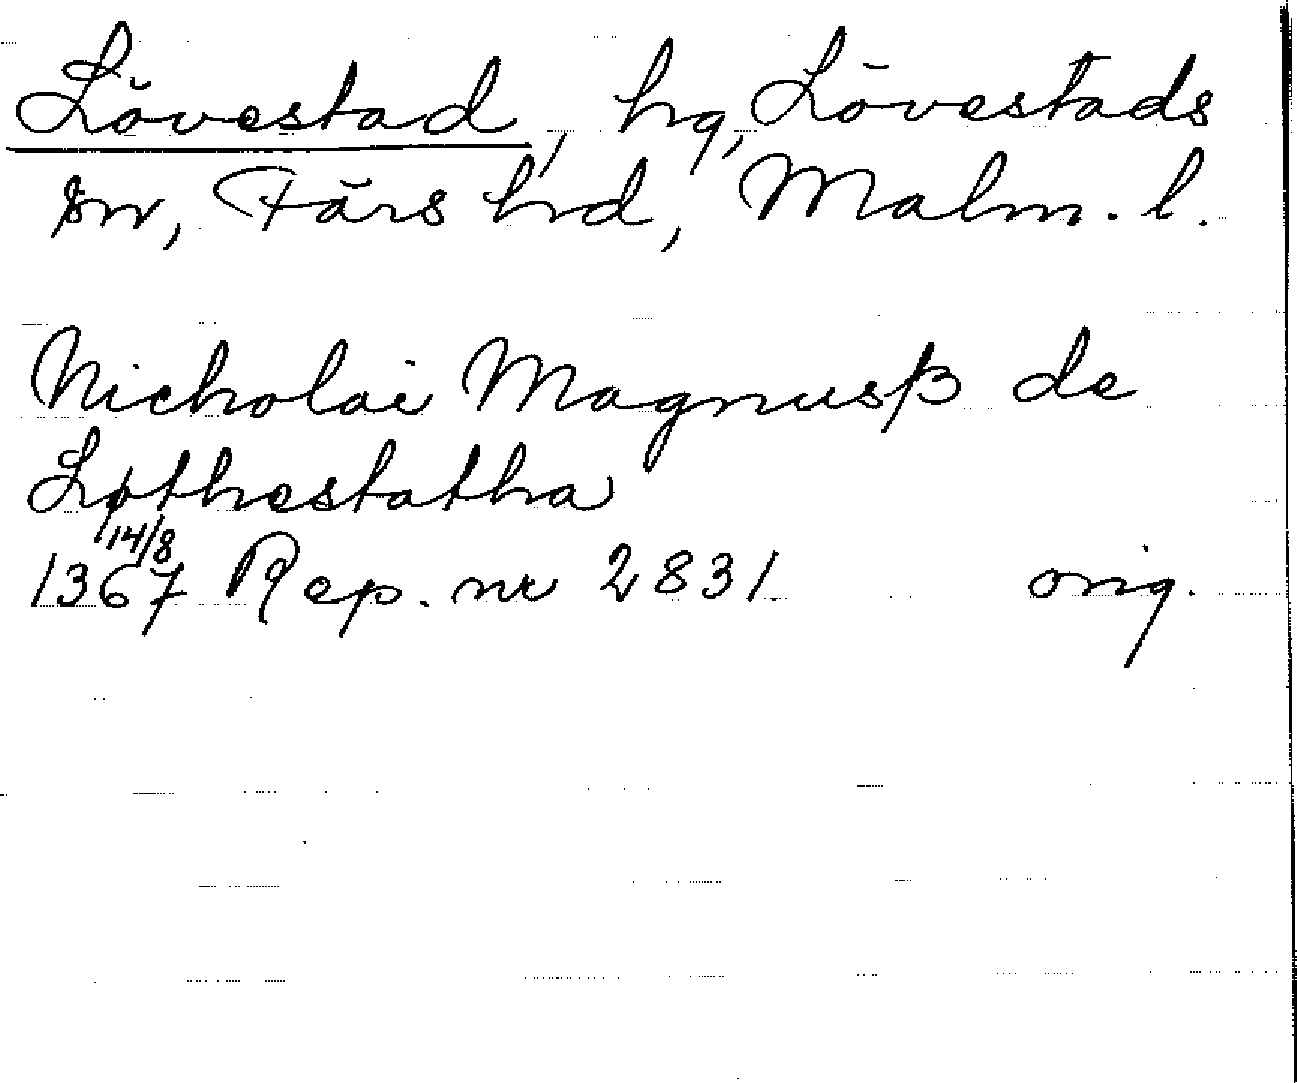 Lövestad, hg, Lövestads
sn, Färs hd, Malm. l.
Nicholai Magnusß de
Løthestatha
14/8
1367 Rep. nr 2831 orig.